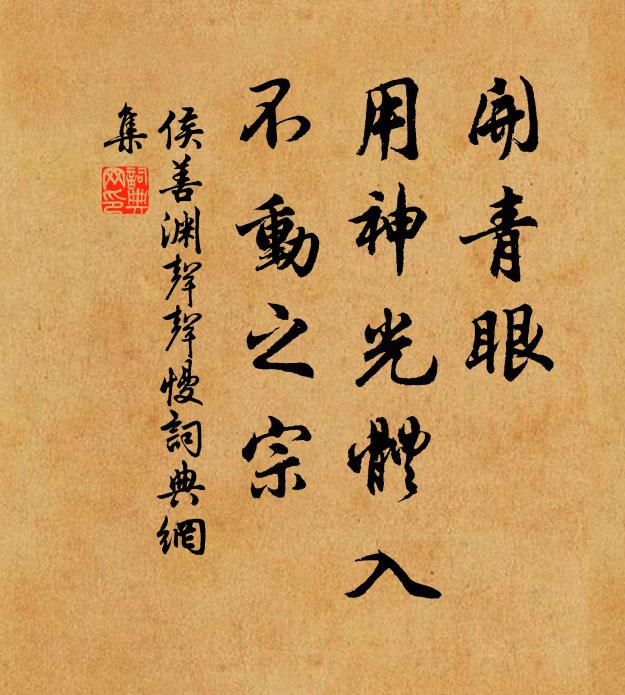 開青眼
用神光體入
不動之宗
侯善渊聲聲慢詞典網
集
詞典
网印